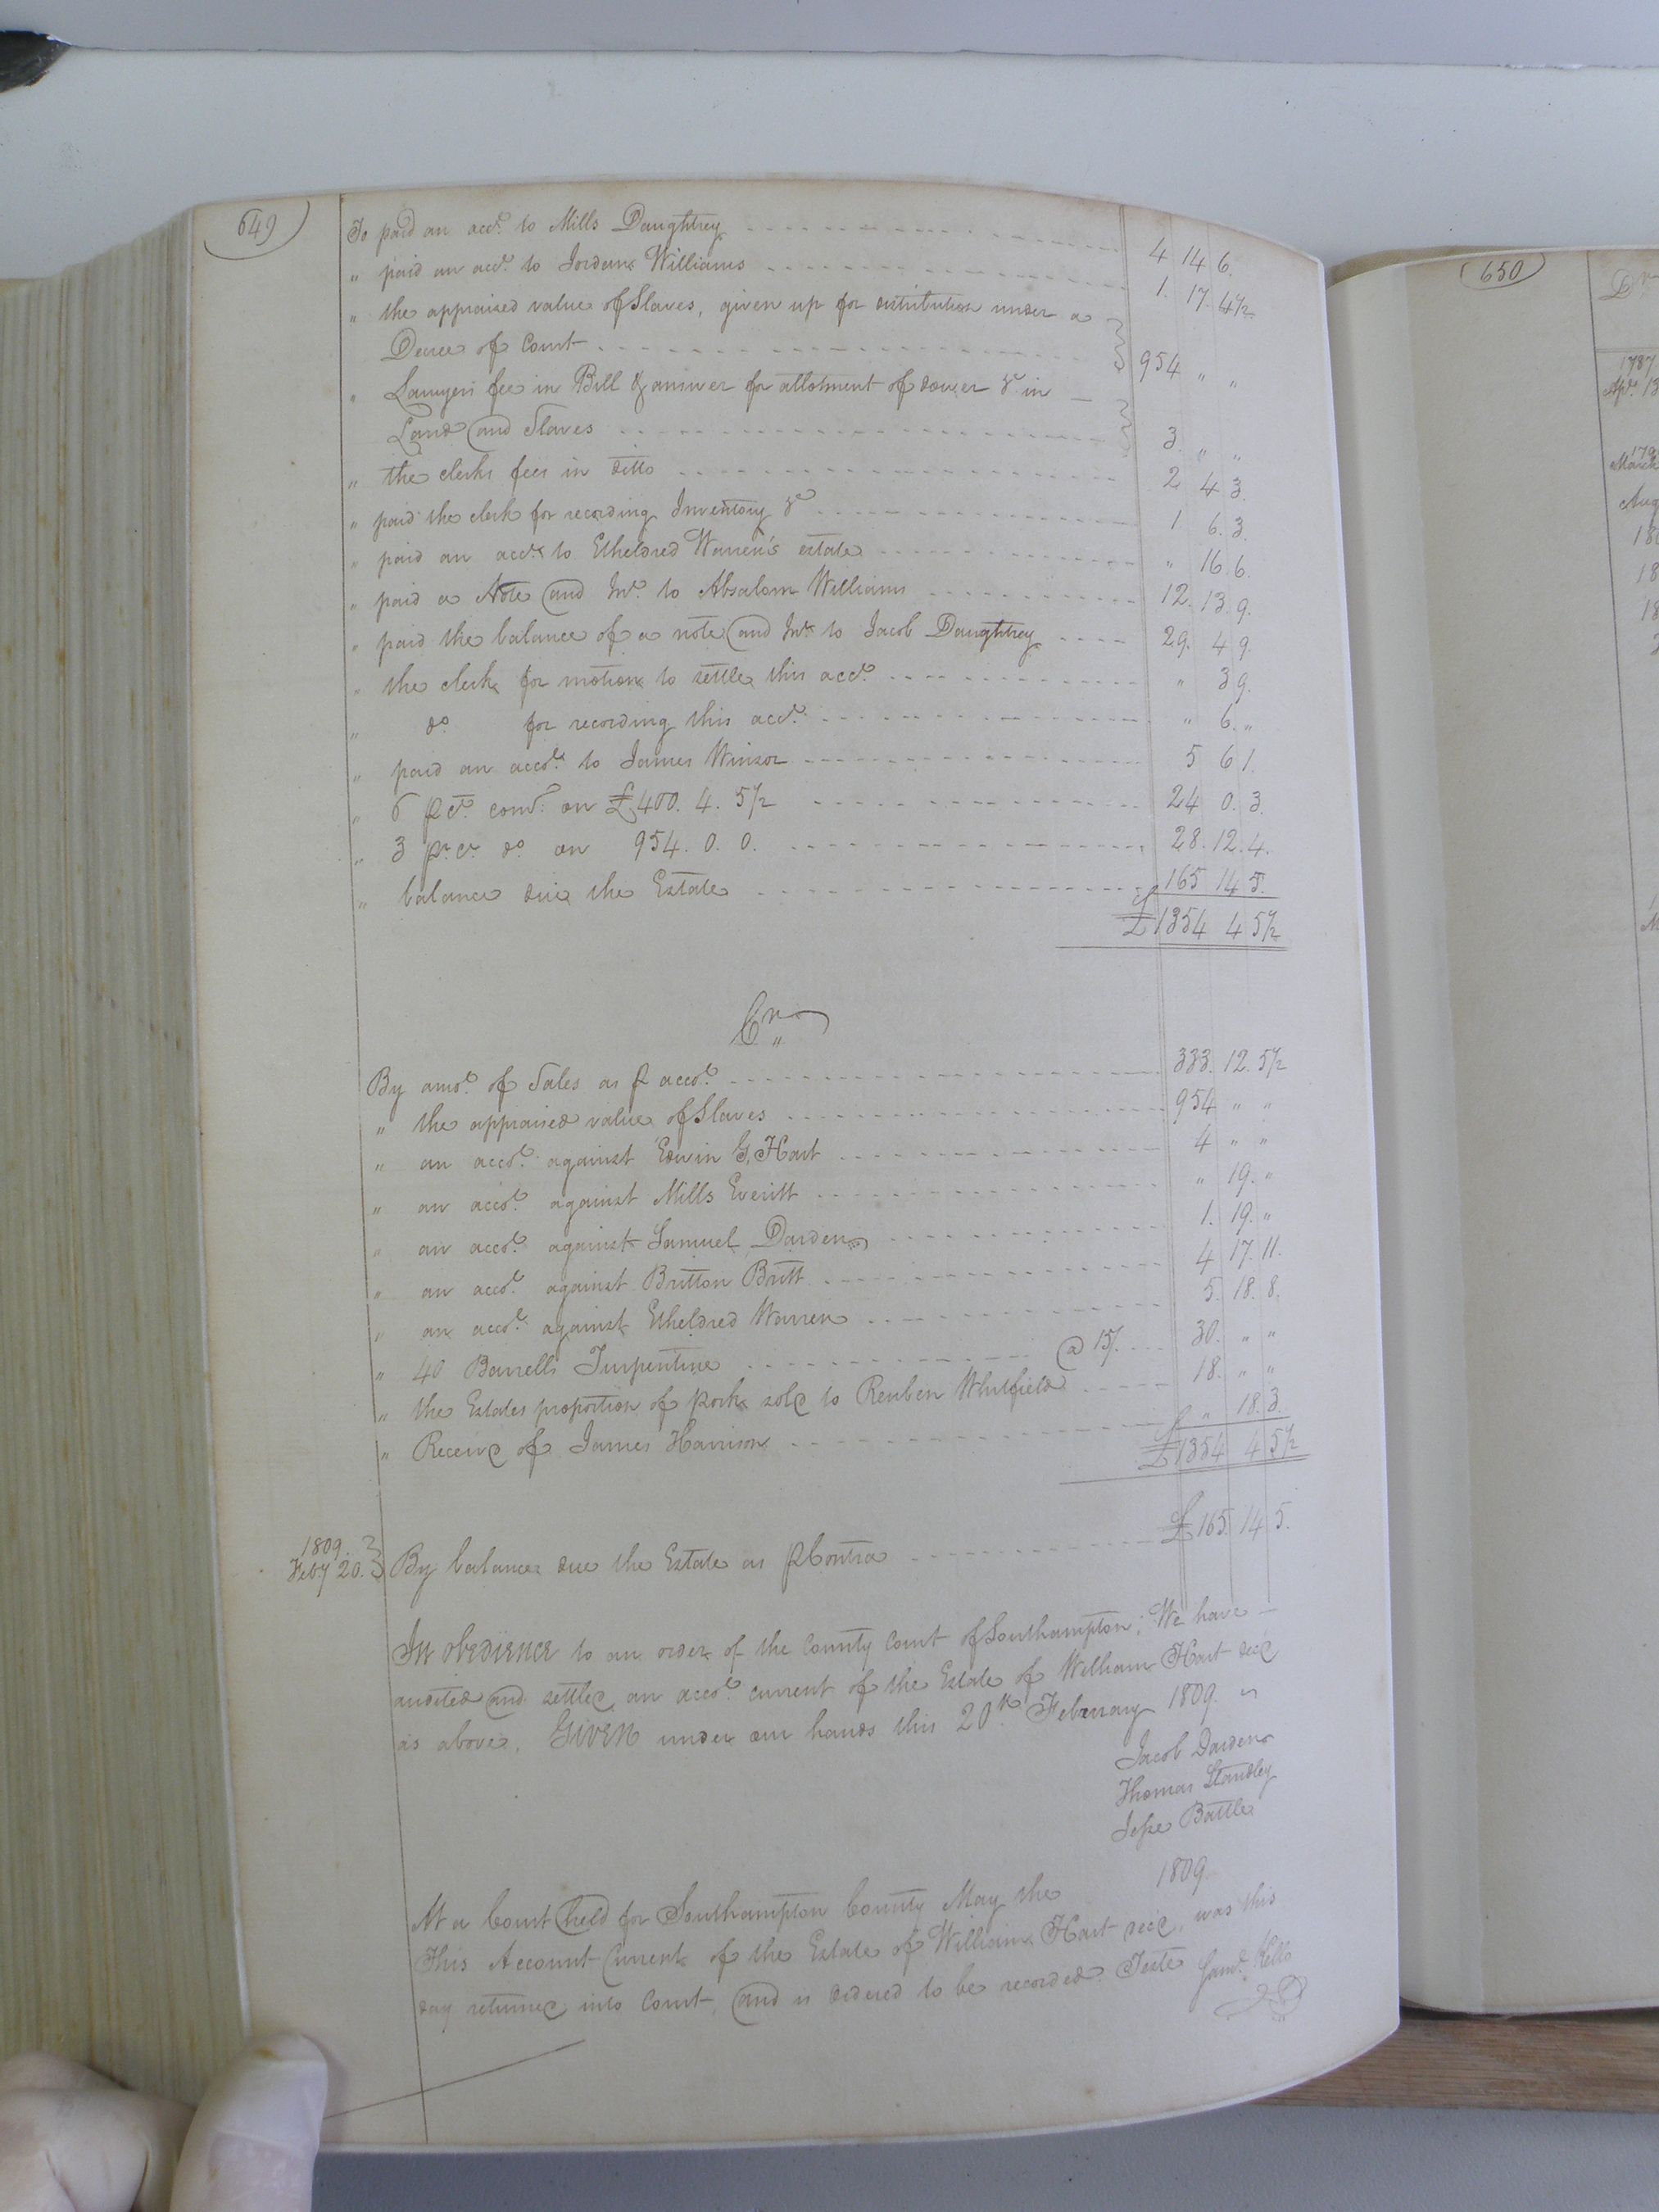 649
To paid an acco.t to Mills Daughtrey 4 14 6.
" paid an acco.t to Jordan Williams 1. 17. 4½
" the appraised value of Slaves, given up for distribution under a
Decree of Court 954 " "
" Lawyers fee in Bill & answer for allotment of dower &c in
Land and Slaves 3. " "
" the clerks fees in ditto 2 4 3.
" paid the clerk for recording Inventory &c 1 6. 3.
" paid an acco.t to Etheldred Warren's estate " 16. 6.
" paid a Note and Int. to Absalom Williams 12. 13. 9.
" paid the balance of a note and Int. to Jacob Daughtrey 29. 4 9.
" the clerk for motion to settle this acco.t " 3 9.
" do. for recording this acco.t " 6. "
" paid an acco.t to James Winsor 5 6 1.
" 6 P Ct. coms. on £400. 4. 5½ 24 0. 3.
" 3 pr. Ct. do. on 954. 0. 0. 28. 12. 4.
" balance due the Estate 165 14 5.
£1354 4 5½
Cr.
By amo.t of Sales as P acco.t 333. 12. 5½
" the appraised value of Slaves 954 " "
" an acco.t against Edwin G. Hart 4 " "
" an acco.t against Mills Everitt " 19. "
" an acco.t against Samuel Darden 1. 19. "
" an acco.t against Britton Britt 4 17. 11.
" an acco.t against Etheldred Warren 5. 18. 8.
" 40 Barrells Turpentine @ 15/. 30. " "
" the Estates proportion of pork sold to Reuben Whitfield 18. " "
" Receivd of James Harrison " 18. 3.
£1354 4 5½
1809.
Feby 20. By balance due the Estate as P Contra £165. 14 5.
In obedience to an order of the County Court of Southampton; We have
audited and settled an acco.t current of the Estate of William Hart decd
as above. Given under our hands this 20th. February 1809.
Jacob Darden
Thomas Standley
Jesse Battle
At a Court held for Southampton County May the 1809.
This Account Current of the Estate of William Hart decd. was this
day returned into Court, and is ordered to be recorded. Teste Saml. Kello
650
Dr
1787
Apl. 13
179
March
Aug
18
18
18